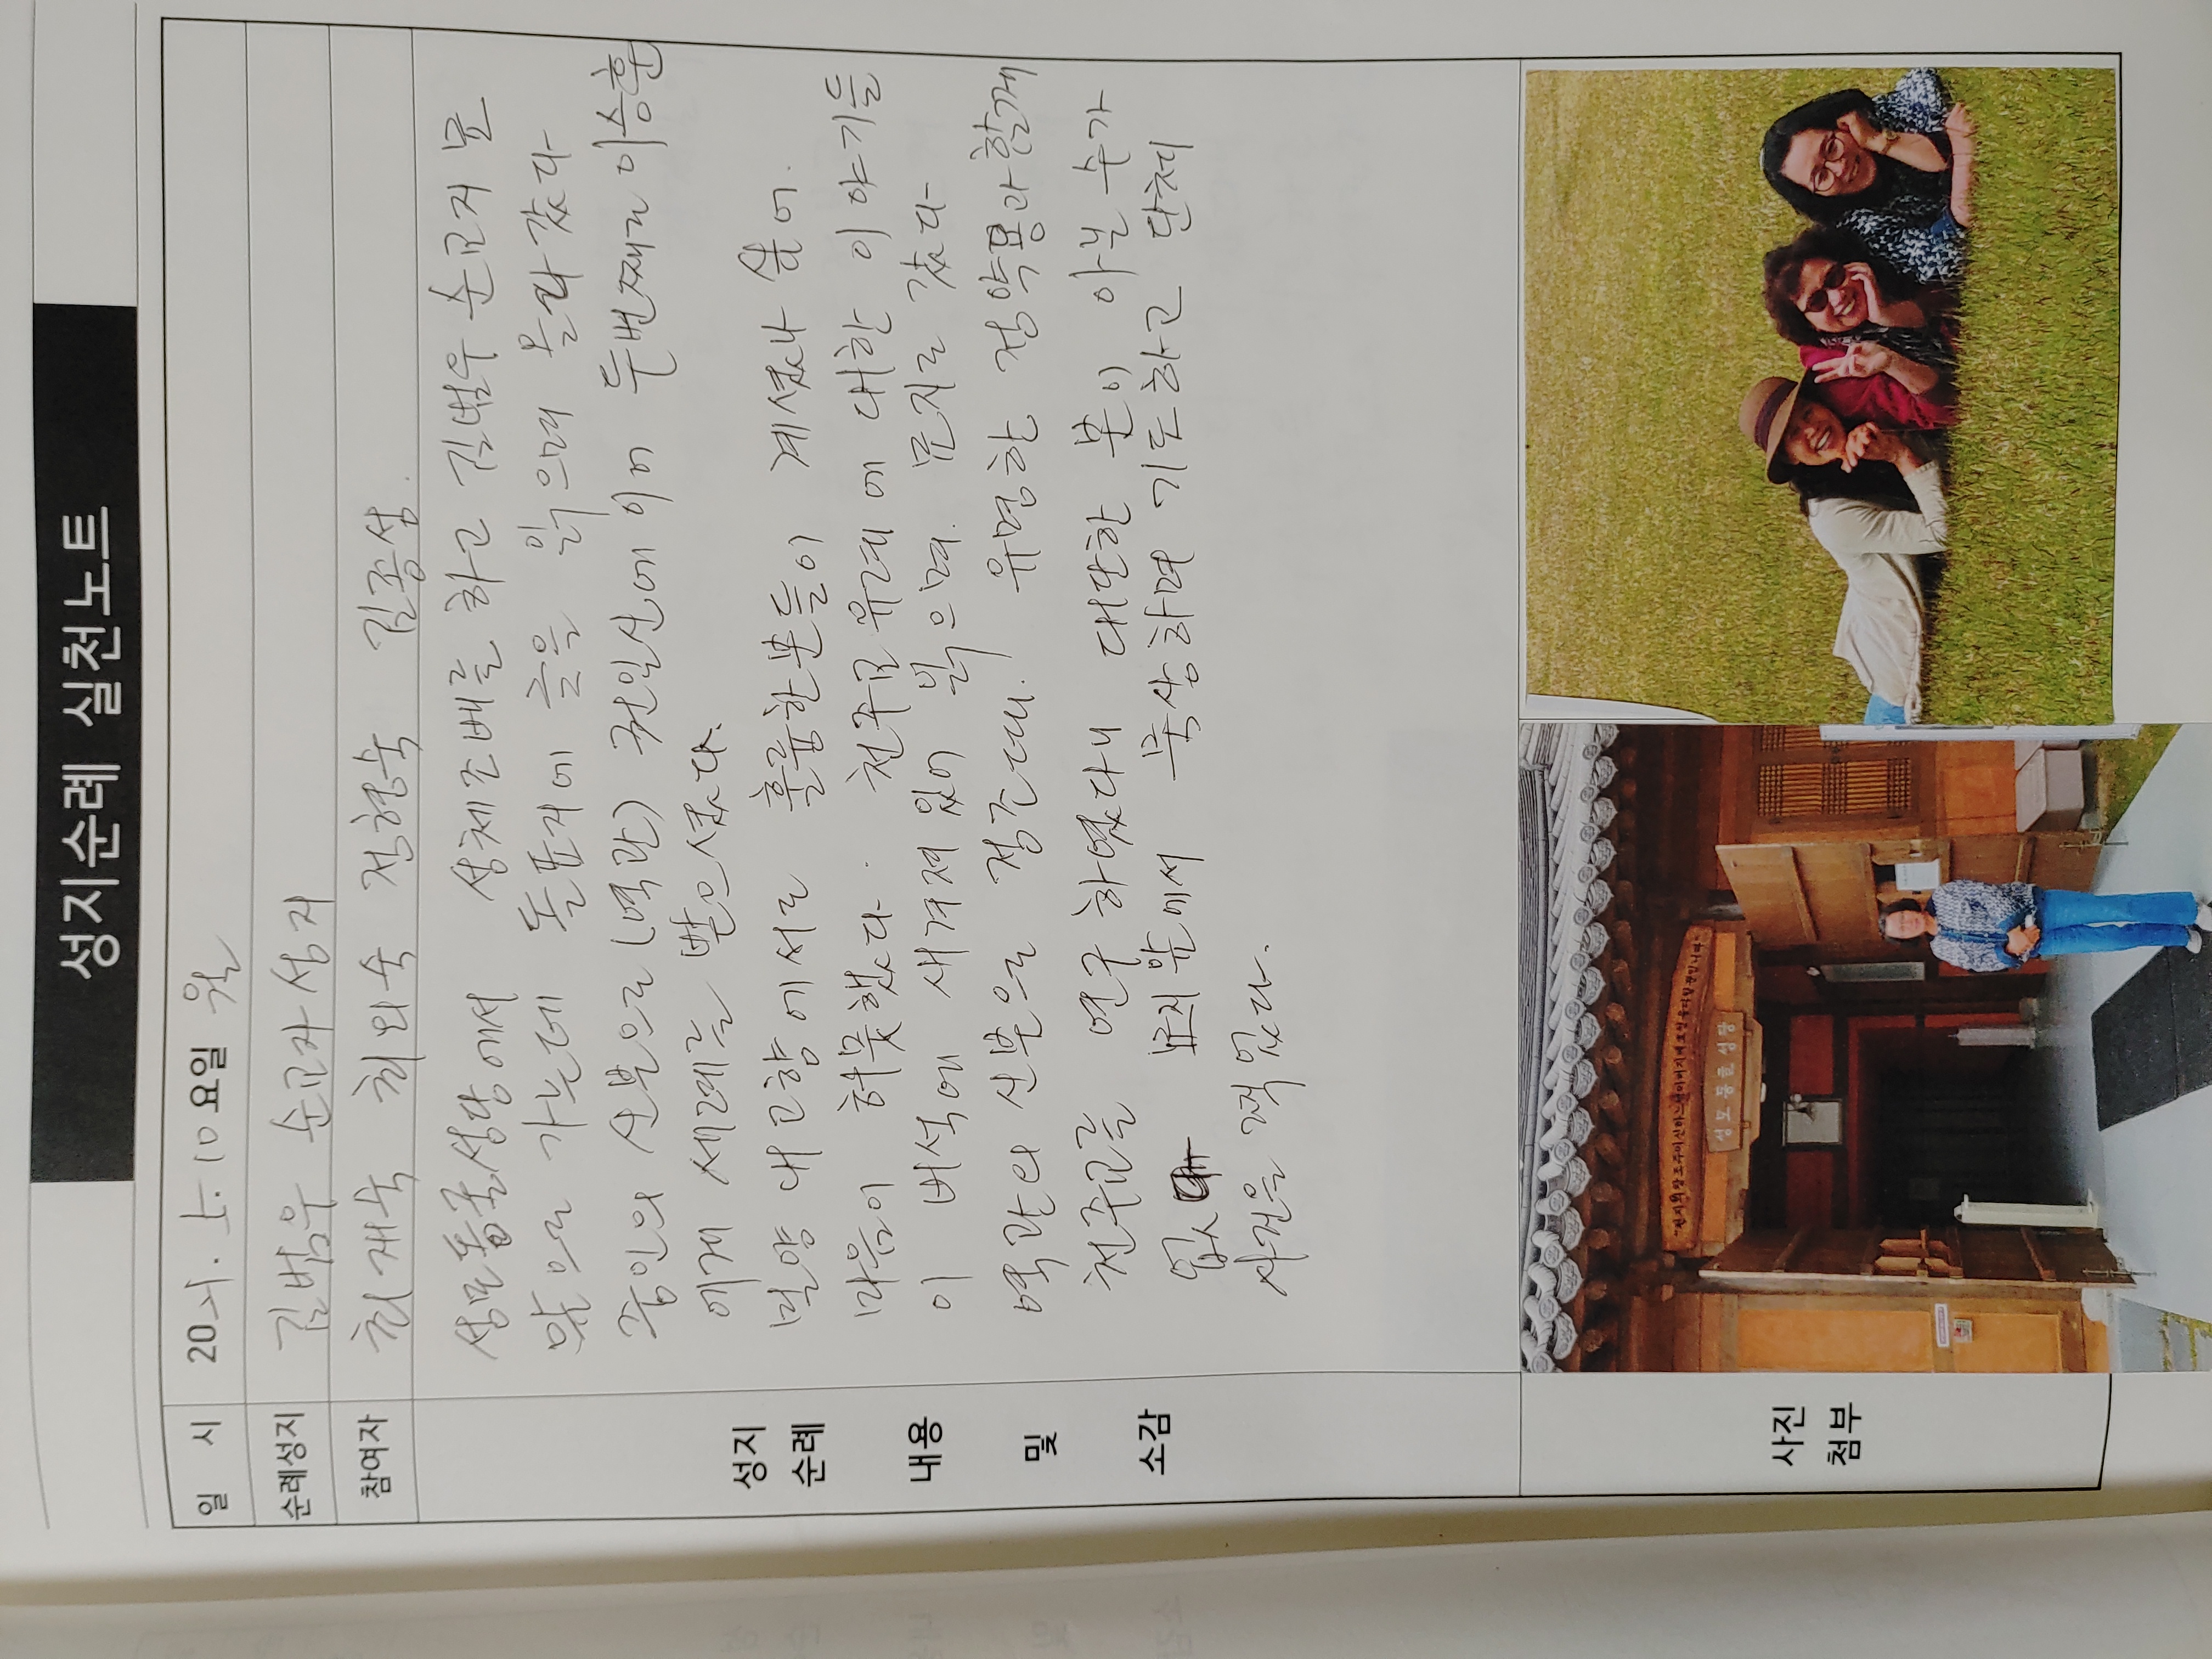 성지순례 실천노트
일 시 20 . 5. 10 요일 월
순례성지 김범우 순교자 성지
참여자 최계숙 최외숙 정형숙 김종성.
성지 순례 내용 및 소감
성모동굴성당에서 성체조배를 하고 김범우 순교자 묘
맞으로 가는데 돌묘지에 글을 읽으며 올라갔다
중인의 신분으로 (벽관) 권일신에 이어 두번째로 이승훈
에게 세례를 받으셨다.
밀양 내고향에서도 훌륭한분들이 계셨나 싶어.
마음이 흐뭇했다. 천주교유래에 대한 이야기들
이 비석에 새겨져 있어 읽으며. 묘지로 갔다
벽관의 신분을 정간대. 유명한 정약용과함께
천주교를 연구 하였다니 대단한 분이 아닐 수가
없다 묘지앞에서 묵상하며 기도하고 단체
사진을 찍었다.
사진 첨부
성모동굴성당